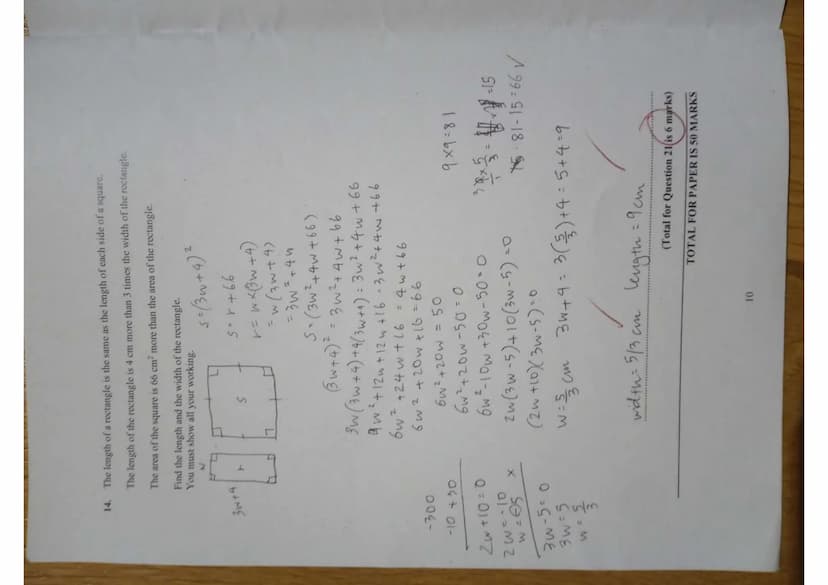 14. The length of a rectangle is the same as the length of each side of a square.
The length of the rectangle is 4 cm more than 3 times the width of the rectangle.
The area of the square is 66 cm² more than the area of the rectangle.
Find the length and the width of the rectangle.
You must show all your working.
w
3w+4
r
S
S=(3w+4)²
S=r+66
r=w×(3w+4)
=w(3w+4)
=3w²+4w
S=(3w²+4w+66)
(3w+4)² = 3w²+4w+66
3w(3w+4)+4(3w+4) = 3w²+4w+66
9w²+12w+12w+16 = 3w²+4w+66
6w²+24w+16 = 4w+66
6w²+20w+16=66
6w²+20w=50
6w²+20w-50=0
6w²-10w+30w-50=0
2w(3w-5)+10(3w-5)=0
(2w+10)(3w-5)=0
w=5/3 cm 3w+4 = 3(5/3)+4 = 5+4=9
-300
-10 +30
2w+10=0
2w=-10
x
3w-5=0
3w=5
w=5/3
9×9=81
=15
81-15=66 ✓
width = 5/3 cm length = 9cm
(Total for Question 21 is 6 marks)
TOTAL FOR PAPER IS 50 MARKS
10